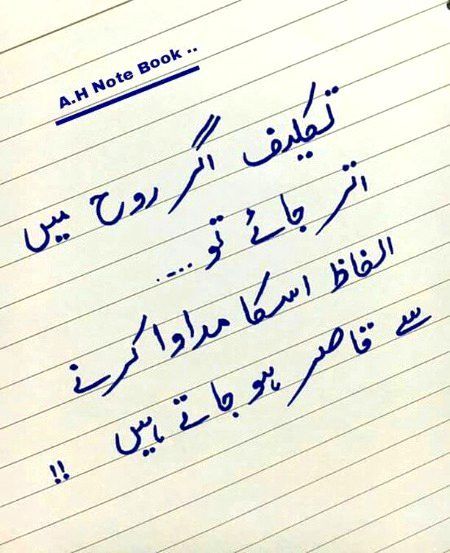 A.H Note Book ..
تکلیف اگر روح میں
اتر جائے تو....
الفاظ اسکا مداوا کرنے
سے قاصر ہو جاتے ہیں !!